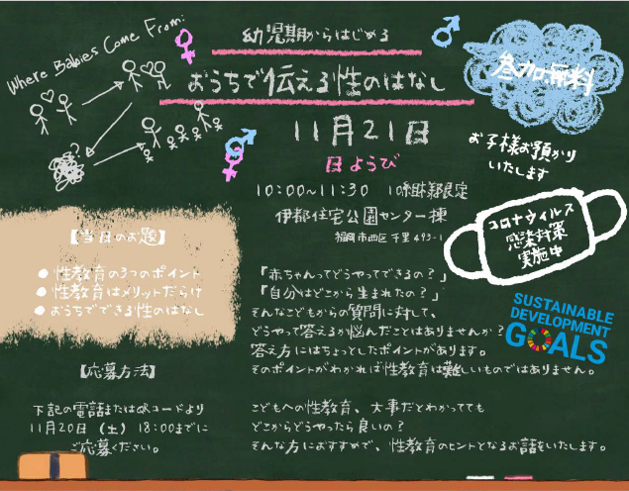 Where Babies Come From:
幼児期からはじめる
おうちで伝える性のはなし
参加無料
11月21日
日ようび
お子様お預かり
いたします
10:00~11:30 10家族様限定
伊都住宅公園センター棟
福岡市西区千里493-1
コロナウィルス
感染対策
実施中
【当日のお題】
●性教育の3つのポイント
●性教育はメリットだらけ
●おうちでできる性のはなし
「赤ちゃんってどうやってできるの?」
「自分はどこから生まれたの?」
そんなこどもからの質問に対して、
どうやって答えるか悩んだことはありませんか?
答え方にはちょっとしたポイントがあります。
そのポイントがわかれば性教育は難しいものではありません。
SUSTAINABLE
DEVELOPMENT
GOALS
【応募方法】
下記の電話またはQRコードより
11月20日(土)18:00までに
ご応募ください。
こどもへの性教育、大事だとわかってても
どこからどうやったら良いの?
そんな方におすすめで、性教育のヒントとなるお話をいたします。